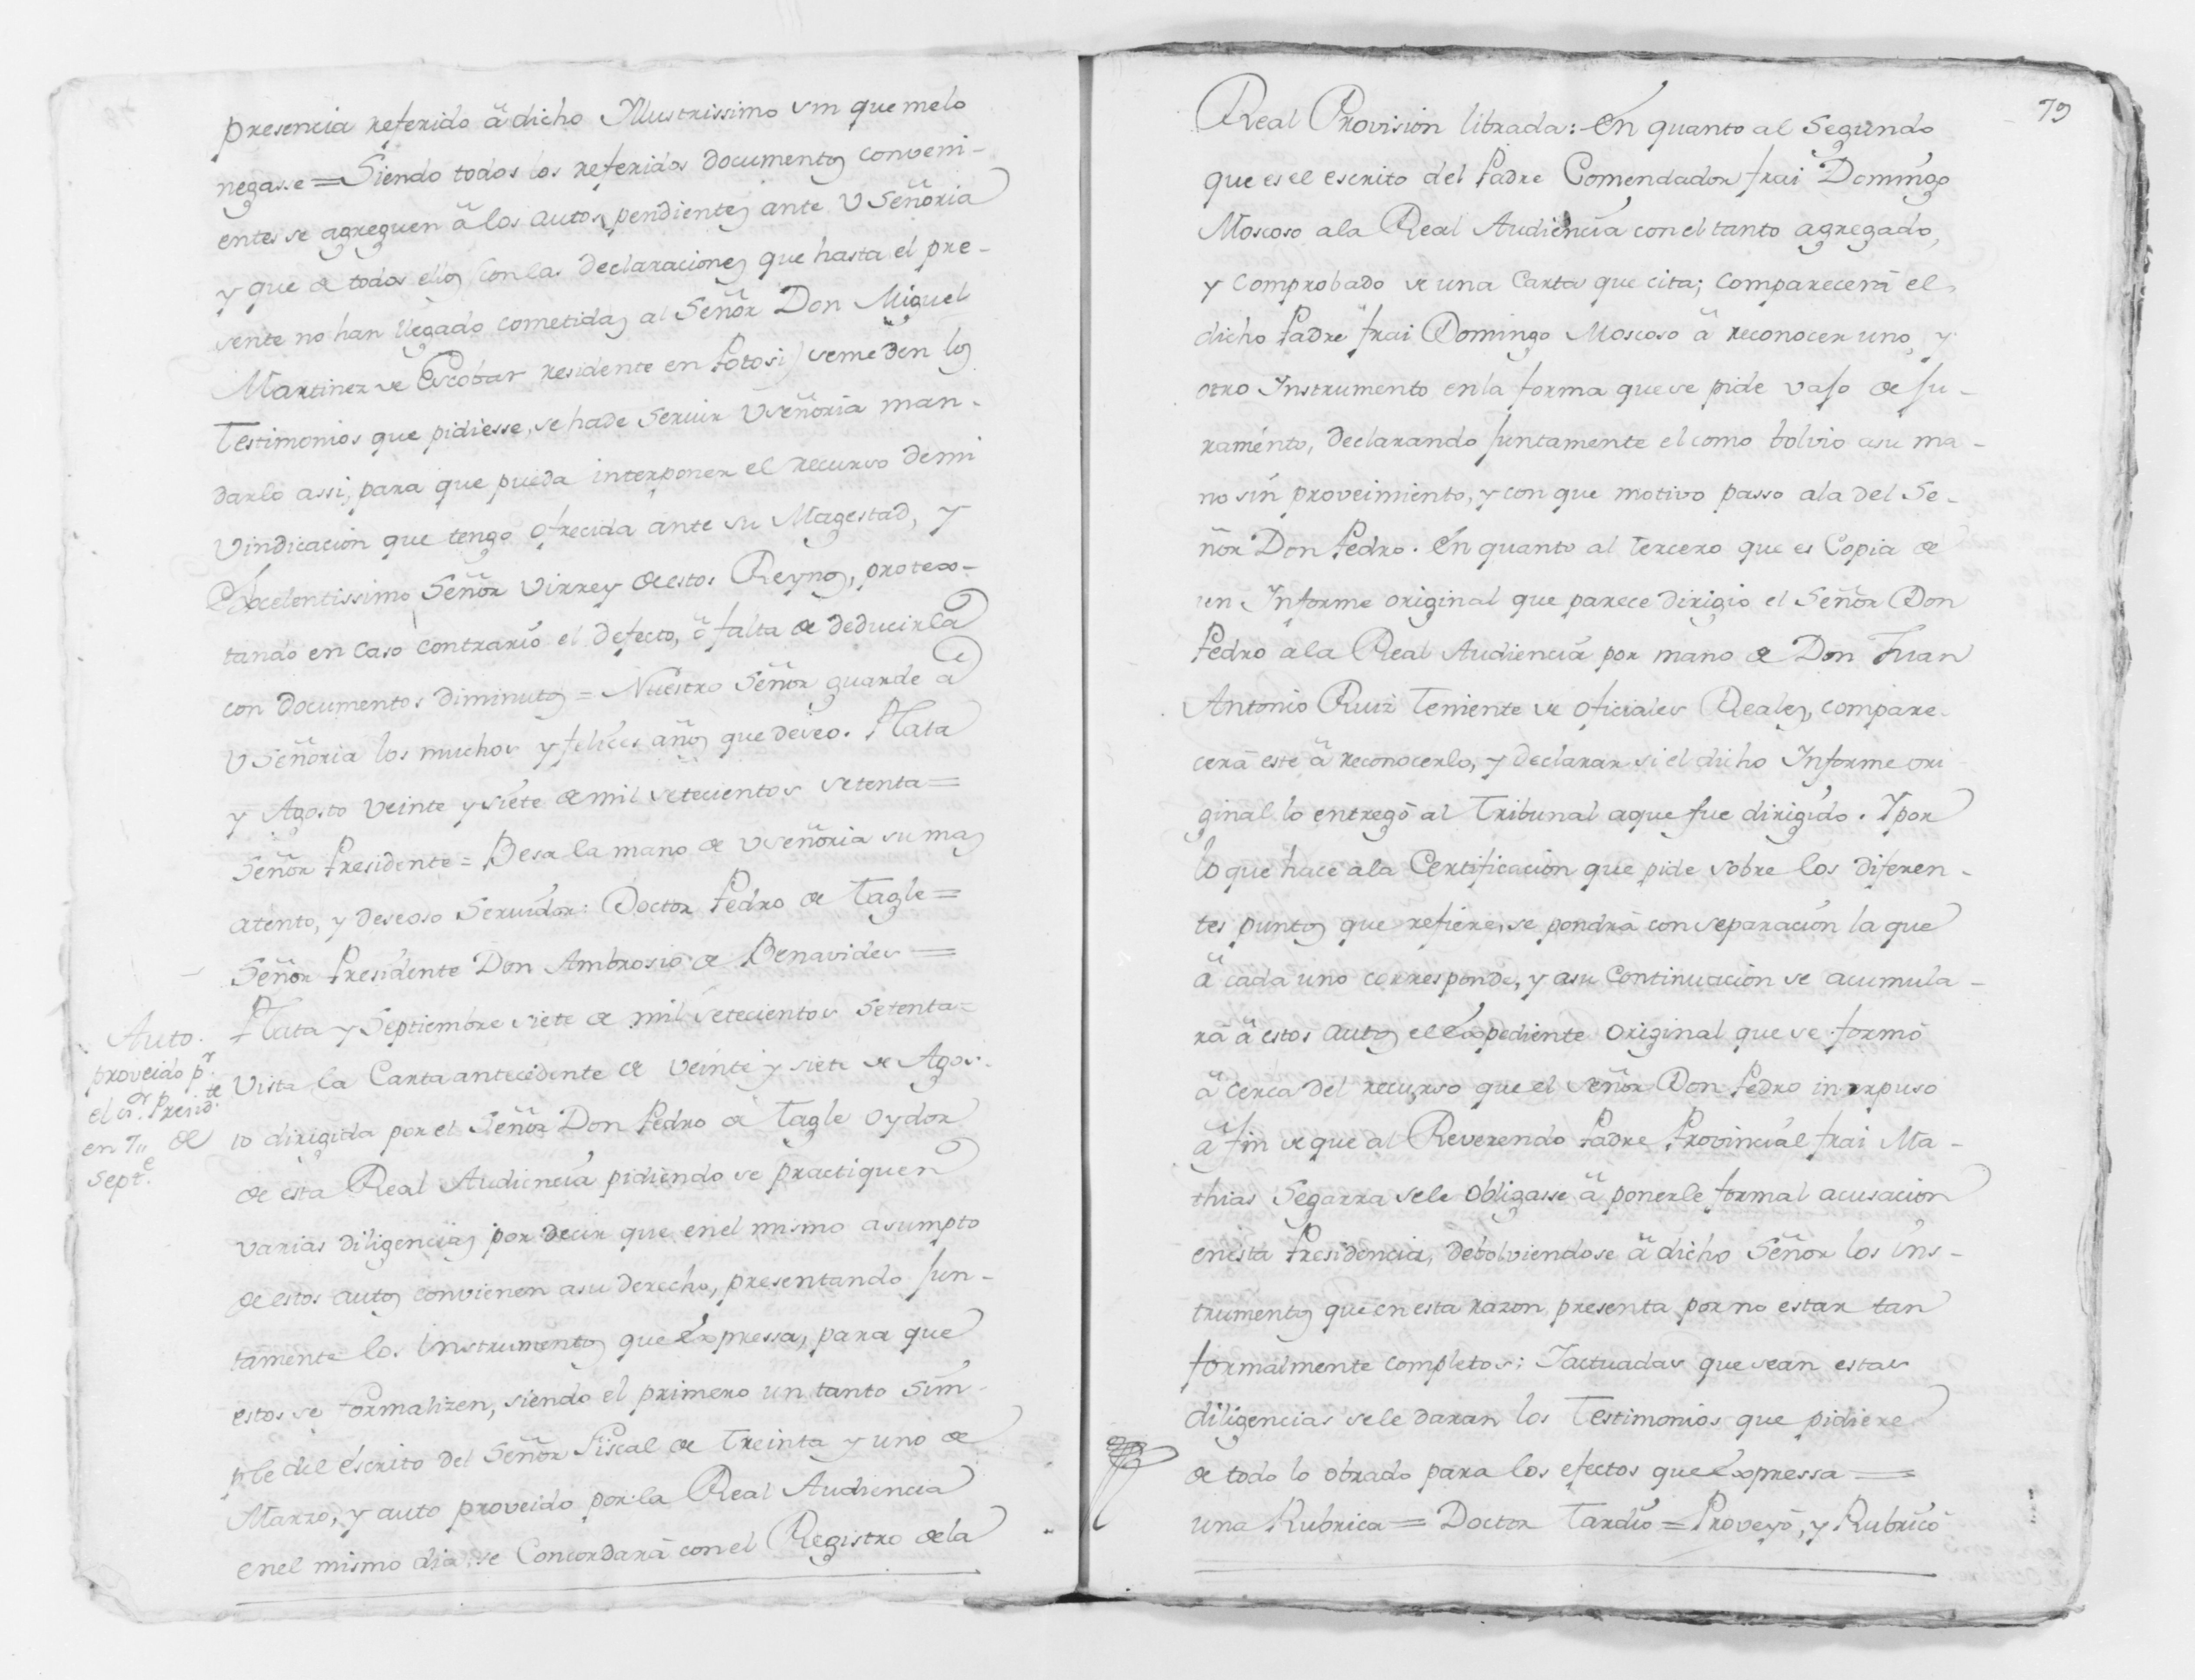 presencia referido â dicho Yllustrissimo sin que melo
negasse = Siendo todos los referidos documentos conveni-
entes se agreguen â los autos pendientes ante VSeñoria
y que de todos ellos (con las declaraciones que hasta el pre-
sente no han llegado cometidas al Señor Don Miguel
Martinez de Escobar residente en Potosi) seme den los
Testimonios que pidiesse, se hade Servir VSeñoria man-
darlo assi, para que pueda interponer el recurso demi
Vindicacion que tengo ofrecida ante su Magestad, y
Excelentissimo Señor Virrey de estos Reynos, protex-
tando en caso contrario el defecto, ô falta de deducirla
con documentos diminutos = Nuestro Señor guarde a
VSeñoria los muchos y felices años que deseo. Plata
y Agosto veinte y siete de mil setecientos setenta =
Señor Presidente = Besa la mano de VSeñoria su mas
atento, y deseoso Servidor: Doctor Pedro de Tagle =
Señor Presidente Don Ambrosio de Benavides =
Auto
proveido pr.
el sr. Presidte
en 7,, de
Septe.
Plata y Septiembre siete de mil setecientos setenta =
Vista la Carta antecedente de veinte y siete de Agos-
to dirigida por el Señor Don Pedro de Tagle oydor
de esta Real Audiencia pidiendo se practiquen
varias diligencias por decir que enel mismo asumpto
de estos autos convienen asu derecho, presentando jun-
tamente los instrumentos que expressa, para que
estos se formalizen, siendo el primero un tanto sim-
ple del escrito del Señor Fiscal de treinta y uno de
Marzo, y auto proveido por la Real Audiencia
enel mismo dia se Concordarâ con el Registro dela
79
Real Provision librada: En quanto al Segundo
que es el escrito del Padre Comendador frai Domingo
Moscoso ala Real Audiencia con el tanto agregado,
y comprobado de una Carta que cita; comparecerâ el
dicho Padre frai Domingo Moscoso â reconocer uno, y
otro Instrumento enla forma que se pide vajo de ju-
ramento, declarando juntamente el como bolvio asu ma-
no sin proveimiento, y con que motivo passo ala del Se-
ñor Don Pedro. En quanto al tercero que es Copia de
un Informe original que parece dirigio el Señor Don
Pedro ala Real Audiencia por mano de Don Juan
Antonio Ruiz Teniente de oficiales Reales, compare-
cerâ este â reconocerlo, y declarar si el dicho Informe ori
ginal lo entregô al Tribunal aque fue dirigido. Y por
lo que hace ala Certificacion que pide sobre los diferen-
tes puntos que refiere, se pondrâ con separacion la que
â cada uno corresponde, y asu continuacion se acumula-
râ â estos autos el expediente original que se formô
â cerca del recurso que el Señor Don Pedro interpuso
â fin de que al Reverendo Padre Provincial frai Ma-
thias Segarra sele obligasse â ponerle formal acusacion
enesta Presidencia, debolviendose â dicho Señor los ins-
trumentos que en esta razon presenta por no estar tan
formalmente completos: Y actuadas que sean estas
diligencias sele daran los Testimonios que pidiere
de todo lo obrado para los efectos que expressa =
una Rubrica = Doctor Tardio = Proveyô, y Rubricô